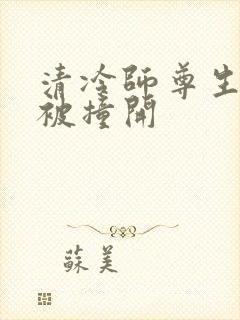 清冷師尊生
被撞開
蘇美